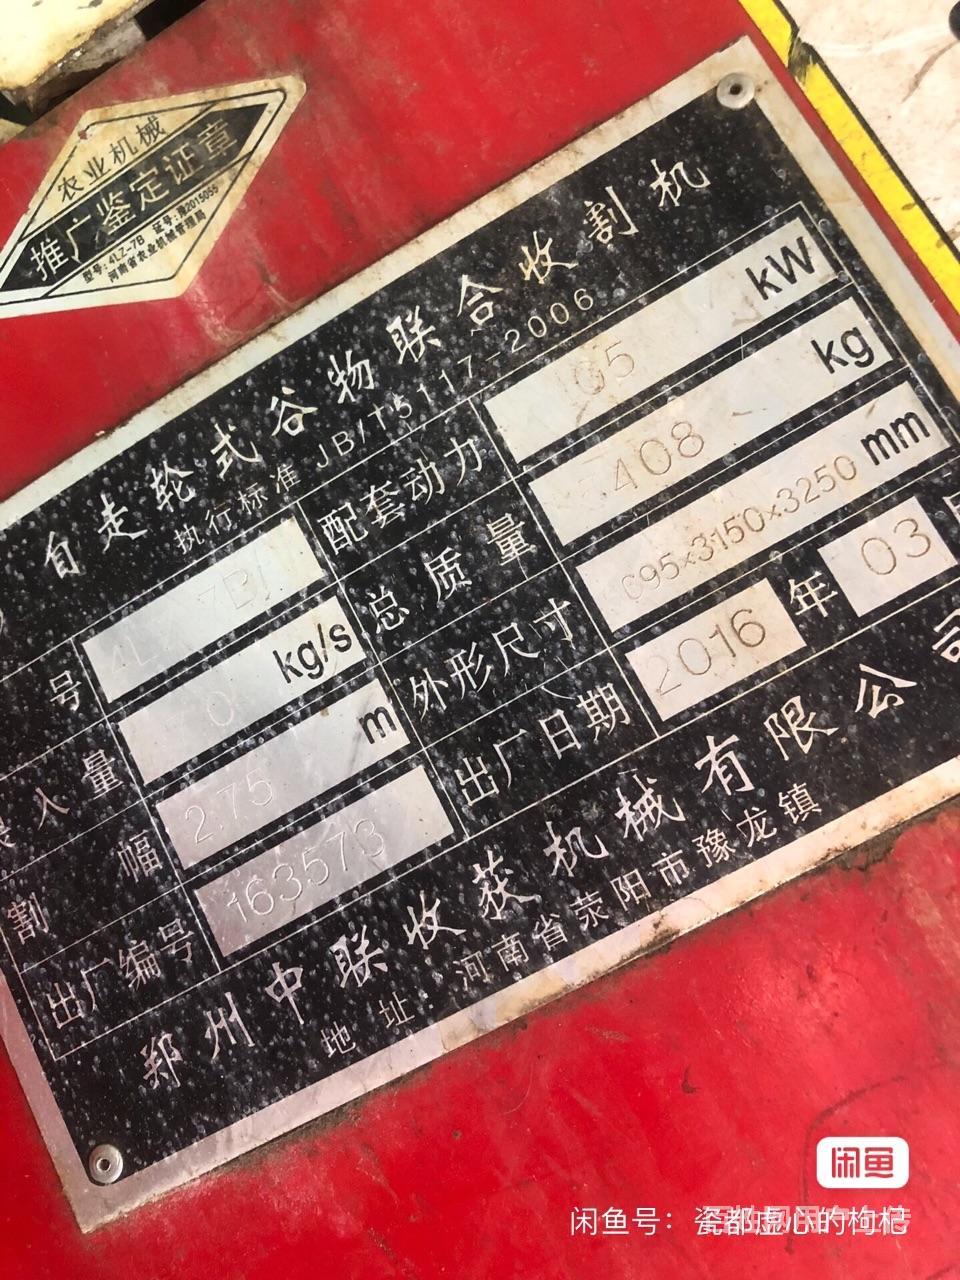 农业机械
推广鉴定证章
型号：4LZ-7B 证号：豫2015055
河南省农业机械管理局
自走轮式谷物联合收割机
执行标准 JB/T5117-2006
号 7B 配套动力 05 kW
入量 0 kg/s 总质量 408 kg
割幅 2.75 m 外形尺寸 095×3150×3250 mm
出厂编号 163573 出厂日期 2016年03
郑州中联收获机械有限公司
地址：河南省荥阳市豫龙镇
闲鱼
闲鱼号：瓷都虚心的枸杞